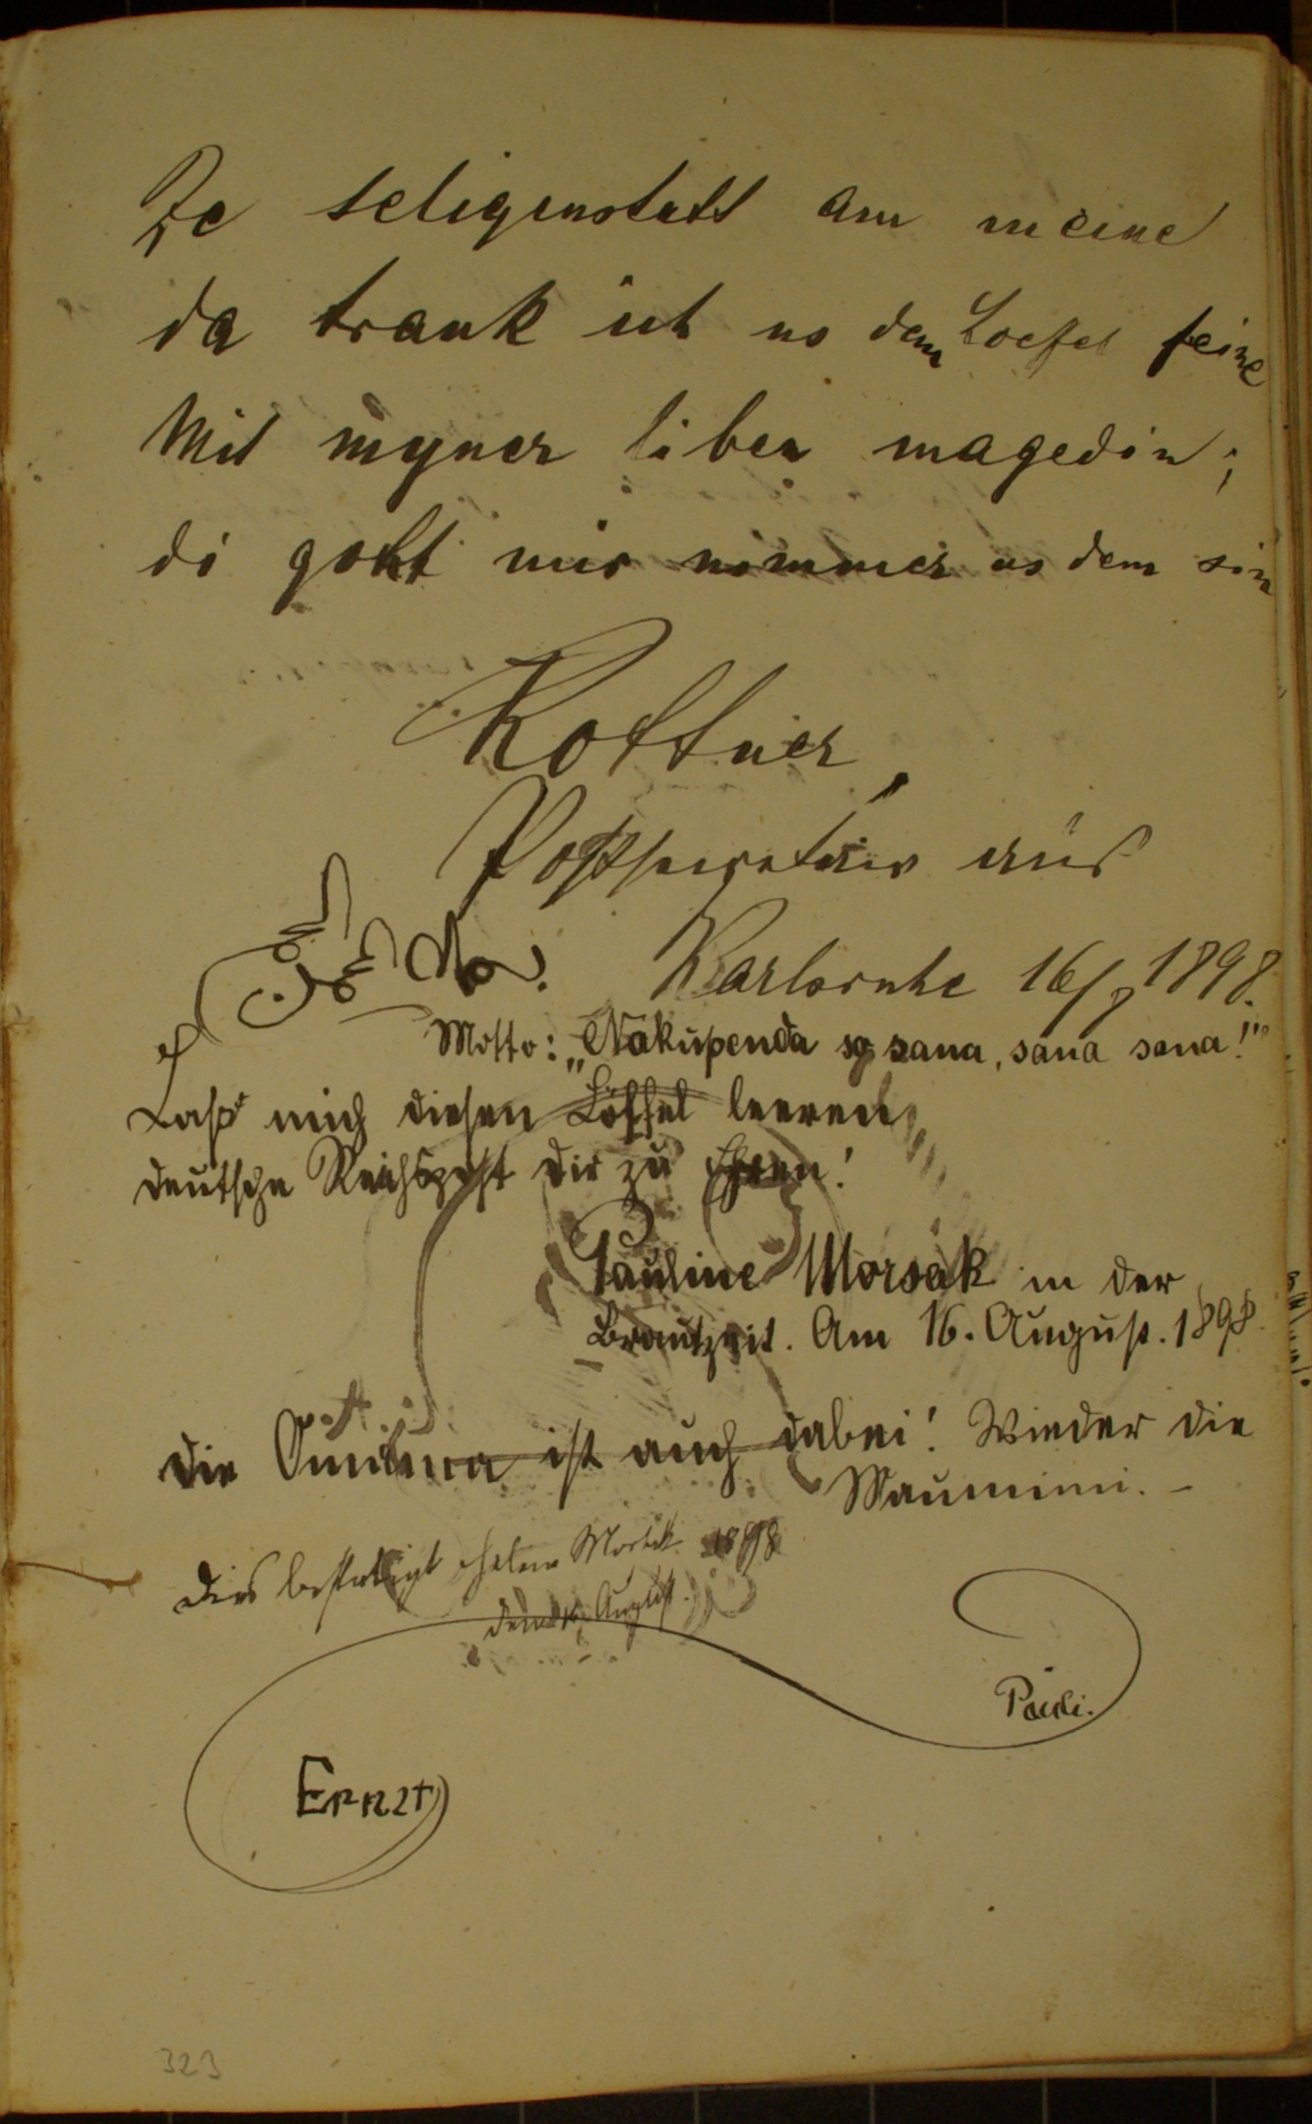 Ze seligenstatt am meine
da trank ich us dem Loefel feine
Mit myner liben magedin;
di goht mir nimmer us dem sin
Kottner,
Postsecretär aus
Karlsruhe 16/8 1898.
Motto: „Nakupenda sana, sana sana!"
Lass mich diesen Löffel leeren
deutsche Reichspost dir zu Ehren!
Pauline Morsak in der
Brautzeit. Am 16. August. 1898.
Die ist auch dabei! Wieder die
Maumimi. -
Dies bestätigt Helene 1898
den 16. August.
Pauli.
Ernzt
323